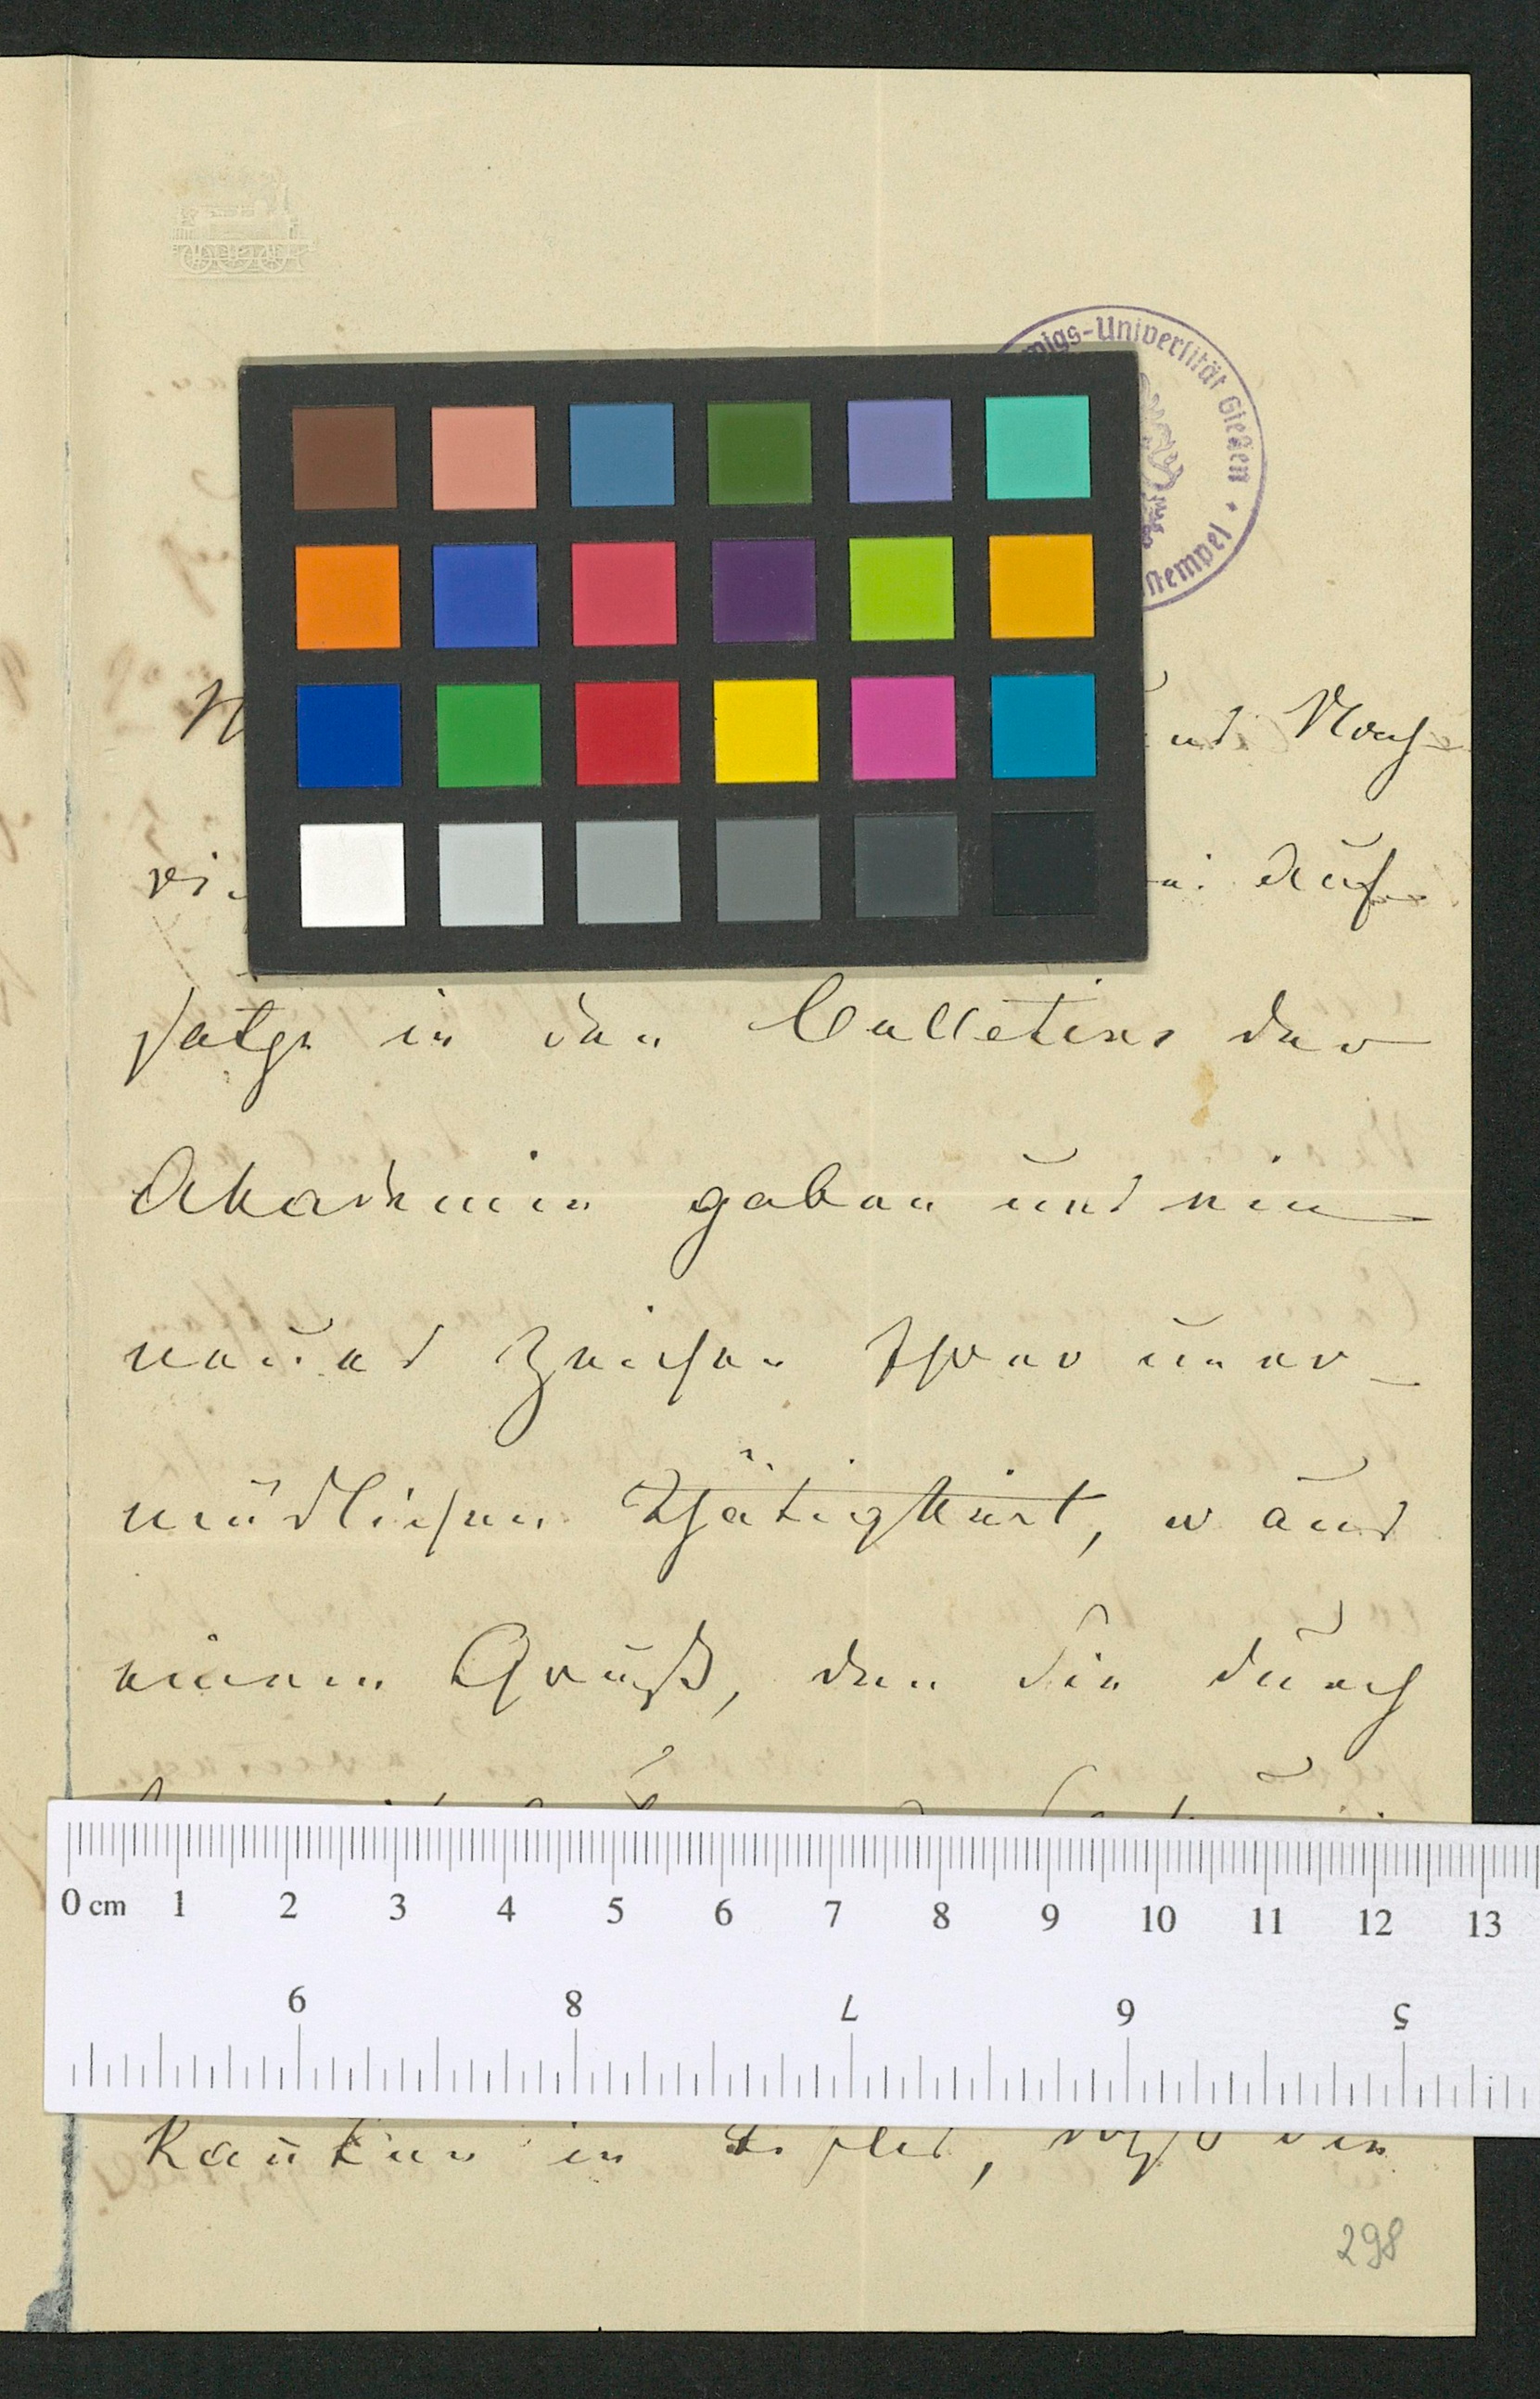 igs-Universität Gießen
Stempel
und Nach-
Auf-
satze in den Bulletins der
Akademie gaben und ein
neues Zeichen Ihrer uner-
müdlichen Thätigkeit, u aus
einem Gruß, den Sie durch
0 cm 1 2 3 4 5 6 7 8 9 10 11 12 13
9 8 7 6 5
in Tiflis,
298